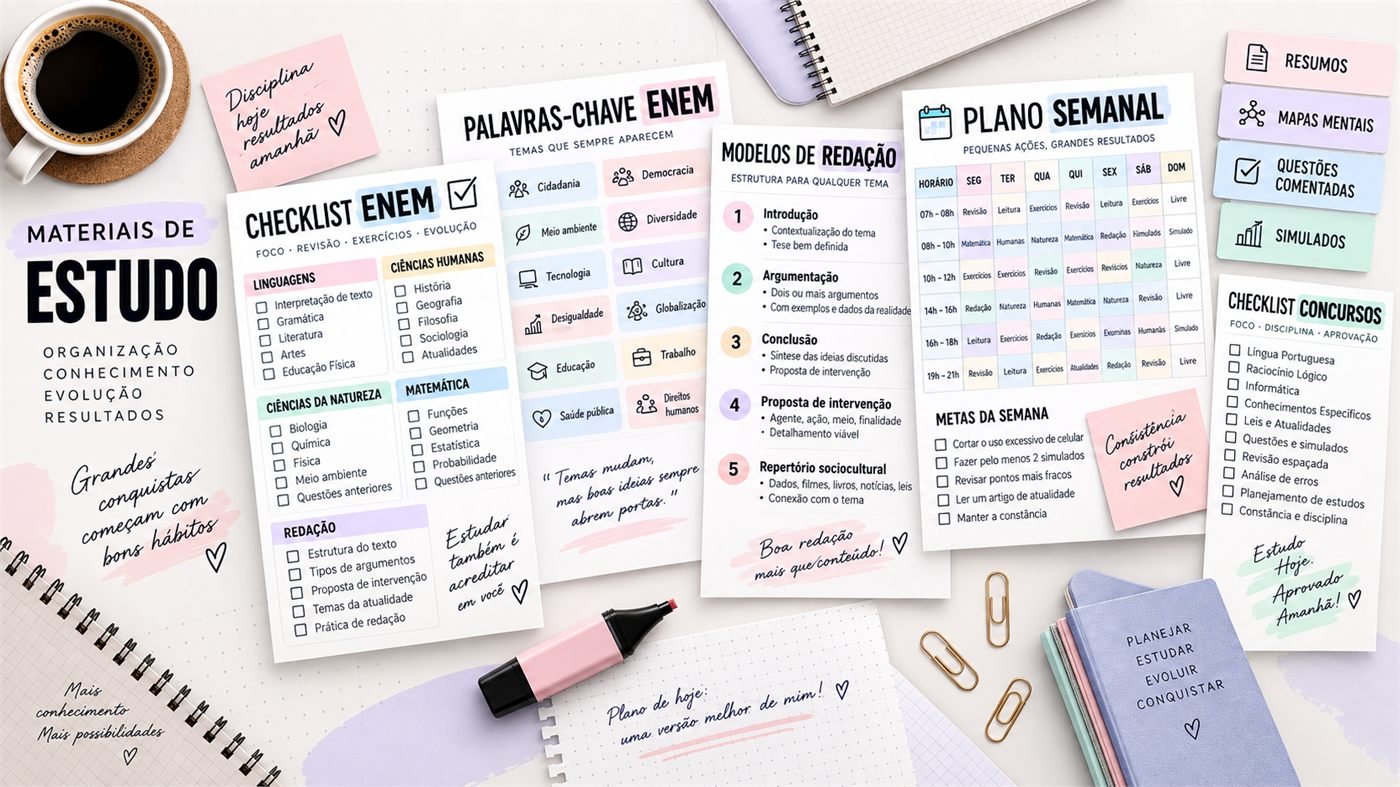 Disciplina
hoje
resultados
amanhã
MATERIAIS DE
ESTUDO
ORGANIZAÇÃO
CONHECIMENTO
EVOLUÇÃO
RESULTADOS
Grandes
conquistas
começam com
bons hábitos
Mais
conhecimento
Mais possibilidades
CHECKLIST ENEM
FOCO · REVISÃO · EXERCÍCIOS · EVOLUÇÃO
LINGUAGENS
Interpretação de texto
Gramática
Literatura
Artes
Educação Física
CIÊNCIAS HUMANAS
História
Geografia
Filosofia
Sociologia
Atualidades
CIÊNCIAS DA NATUREZA
Biologia
Química
Física
Meio ambiente
Questões anteriores
MATEMÁTICA
Funções
Geometria
Estatística
Probabilidade
Questões anteriores
REDAÇÃO
Estrutura do texto
Tipos de argumentos
Proposta de intervenção
Temas da atualidade
Prática de redação
Estudar
também é
acreditar
em você
PALAVRAS-CHAVE ENEM
TEMAS QUE SEMPRE APARECEM
Cidadania
Democracia
Meio ambiente
Diversidade
Tecnologia
Cultura
Desigualdade
Globalização
Educação
Trabalho
Saúde pública
Direitos
humanos
"Temas mudam,
mas boas ideias sempre
abrem portas."
MODELOS DE REDAÇÃO
ESTRUTURA PARA QUALQUER TEMA
1 Introdução
• Contextualização do tema
• Tese bem definida
2 Argumentação
• Dois ou mais argumentos
• Com exemplos e dados da realidade
3 Conclusão
• Síntese das ideias discutidas
• Proposta de intervenção
4 Proposta de intervenção
• Agente, ação, meio, finalidade
• Detalhamento viável
5 Repertório sociocultural
• Dados, filmes, livros, notícias, leis
• Conexão com o tema
Boa redação
mais que conteúdo!
PLANO SEMANAL
PEQUENAS AÇÕES, GRANDES RESULTADOS
HORÁRIO SEG TER QUA QUI SEX SÁB DOM
07h - 08h Revisão Leitura Exercícios Revisão Leitura Exercícios Livre
08h - 10h Matemática Humanas Natureza Matemática Redação Himulads Simulado
10h - 12h Exercícios Exercícios Revisão Exercícios Revíscios Natureza Livre
14h - 16h Redação Natureza Humanas Matemática Natureza Revisão Livre
16h - 18h Leitura Exercícios Redação Exercícios Exominas Humanas Simulado
19h - 21h Revisão Leitura Exercícios Atualidades Redação Revisão Livre
METAS DA SEMANA
Cortar o uso excessivo de celular
Fazer pelo menos 2 simulados
Revisar pontos mais fracos
Ler um artigo de atualidade
Manter a constância
Consistência
constrói
resultados
RESUMOS
MAPAS MENTAIS
QUESTÕES
COMENTADAS
SIMULADOS
CHECKLIST CONCURSOS
FOCO · DISCIPLINA · APROVAÇÃO
Língua Portuguesa
Raciocínio Lógico
Informática
Conhecimentos Específicos
Leis e Atualidades
Questões e simulados
Revisão espaçada
Análise de erros
Planejamento de estudos
Constância e disciplina
Estudo
Hoje.
Aprovado
Amanhã!
Plano de hoje:
uma versão melhor de mim!
PLANEJAR
ESTUDAR
EVOLUIR
CONQUISTAR